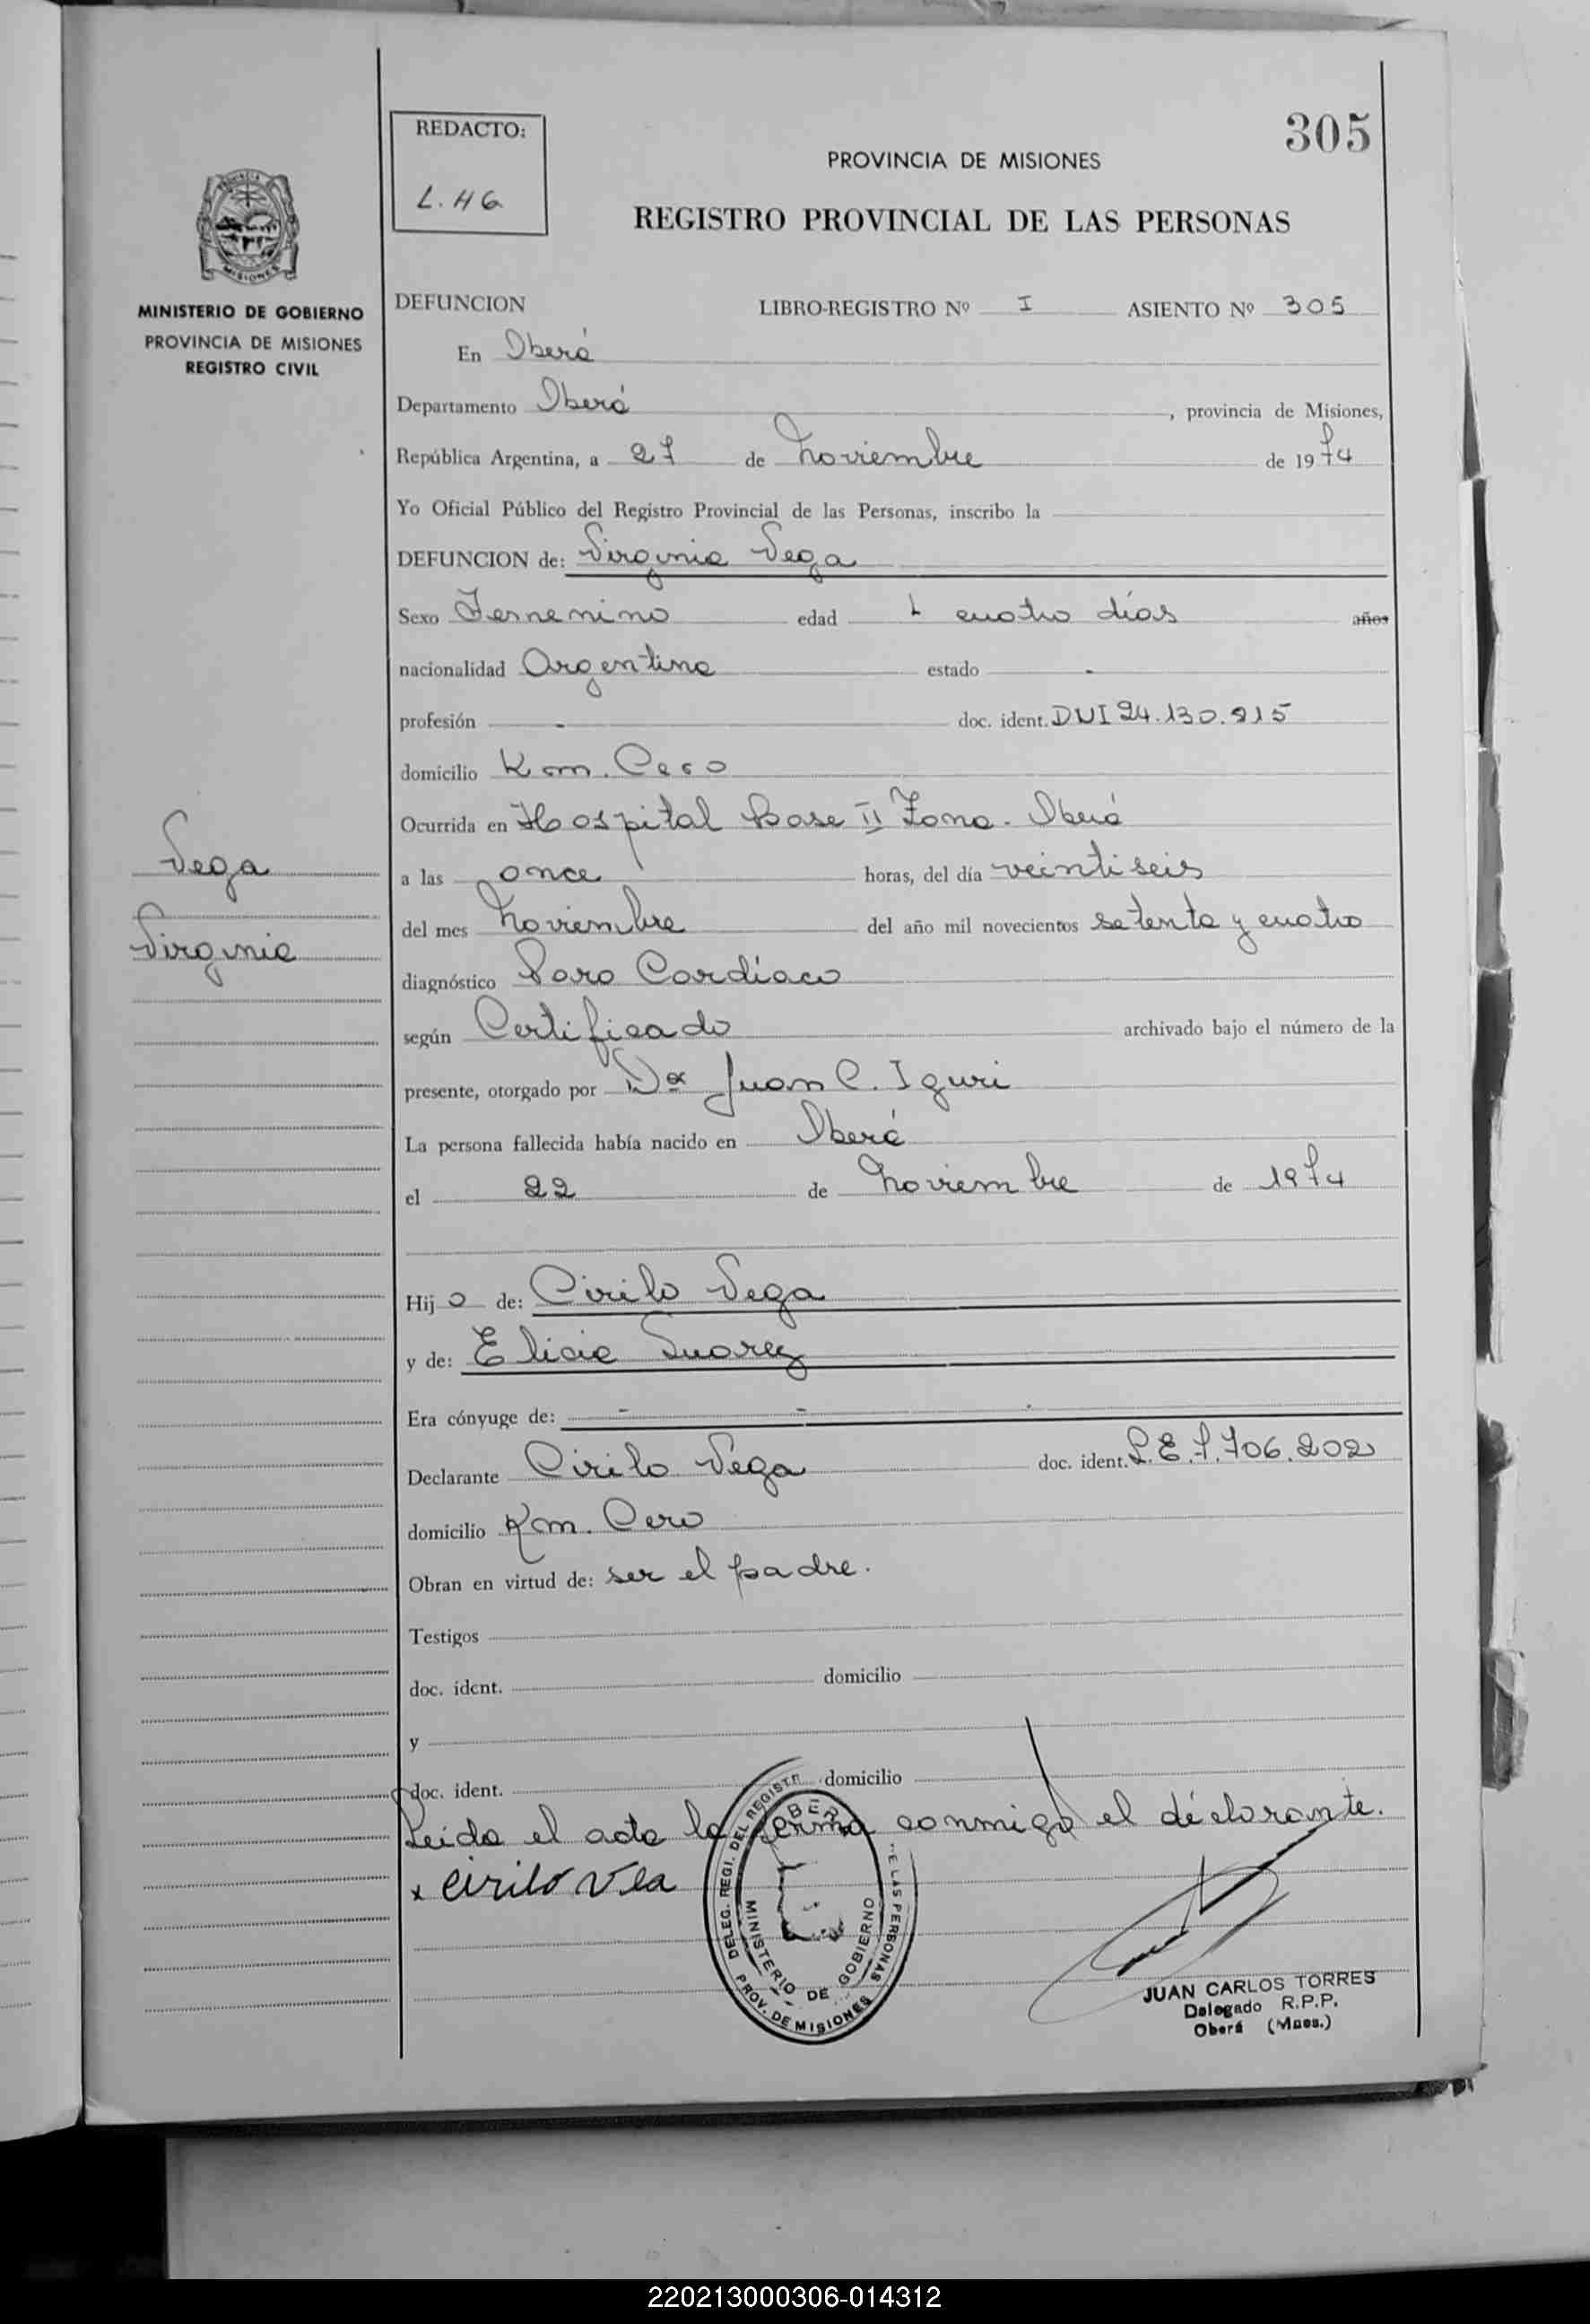 305
REDACTO:
L.HG
PROVINCIA DE MISIONES
REGISTRO PROVINCIAL DE LAS PERSONAS
MISIONES
MINISTERIO DE GOBIERNO
PROVINCIA DE MISIONES
REGISTRO CIVIL
DEFUNCION LIBRO-REGISTRO Nº I ASIENTO Nº 305
En Oberá
Departamento Oberá, provincia de Misiones,
República Argentina, a 27 de Noviembre de 1974
Yo Oficial Público del Registro Provincial de las Personas, inscribo la
DEFUNCION de: Virginia Vega
Sexo Femenino edad cuatro días años
nacionalidad Argentina estado -
profesión - doc. ident. DNI 24.130.915
domicilio Km. Cero
Ocurrida en Hospital Base II Zona - Oberá
a las once horas, del día veintiseis
del mes Noviembre del año mil novecientos setenta y cuatro
diagnóstico Paro Cardíaco
según Certificado archivado bajo el número de la
presente, otorgado por Dr Juan C. Iguri
La persona fallecida había nacido en Oberá
el 22 de Noviembre de 1974
Hij a de: Cirilo Vega
y de: Elicia Suarez
Era cónyuge de: - - -
Declarante Cirilo Vega doc. ident. L.E. 7.706.202
domicilio Km. Cero
Obran en virtud de: ser el padre.
Testigos
doc. ident. domicilio
y
doc. ident. domicilio
Leida el acta la firma conmigo el declarante.
x cirilo vea
Vega
Virginia
DELEG. REGI. DEL REGISTR E LAS PERSONAS
PROV. DE MISIONES
MINISTERIO DE GOBIERNO
JUAN CARLOS TORRES
Delegado R.P.P.
Oberá (Mnes.)
220213000306-014312